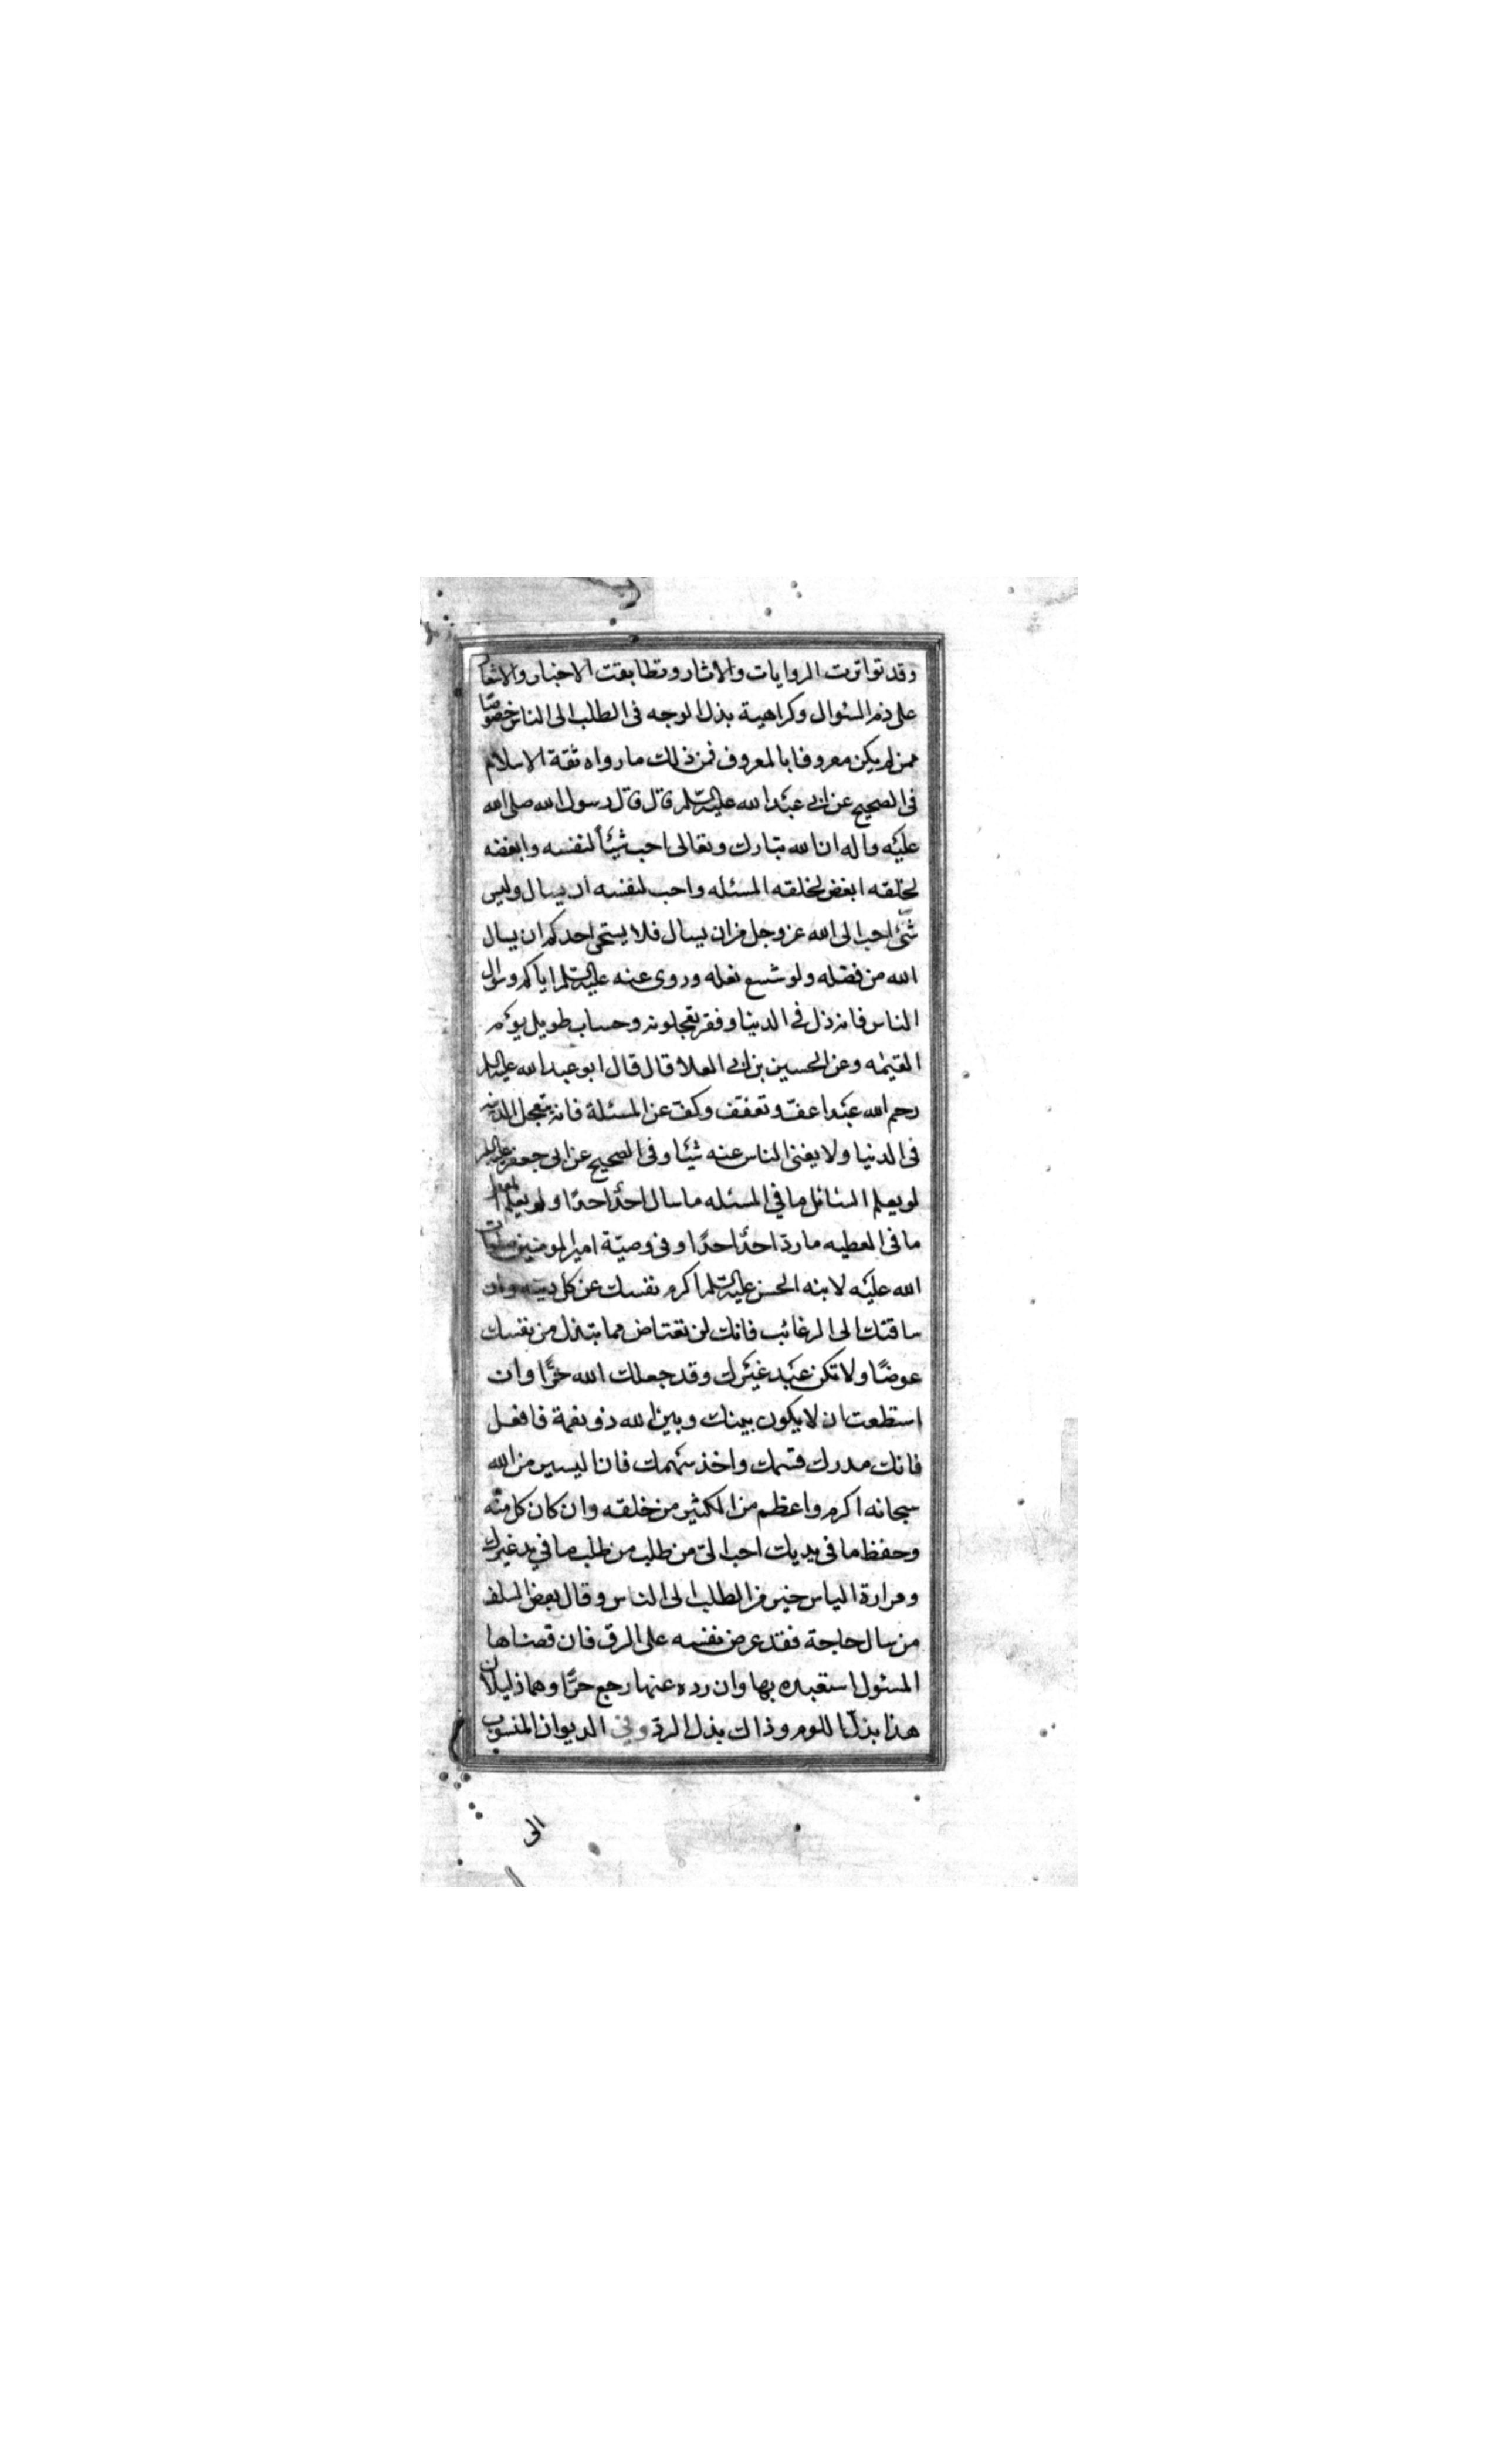 وقد تواترت الروايات والاثار وتطابقت الاخبار والاشعار
على ذم السئوال وكراهية بذل الوجه فى الطلب الى الناس خصوصًا
ممن لم يكن معروفا بالمعروف فمن ذلك ما رواه ثقة الاسلام
فى الصحيح عن ابى عبد الله عليه السلم قال قال رسول الله صلى الله
عليه واله ان الله تبارك وتعالى احب شيئاً لنفسه وابغضه
لخلقه ابغض لخلقه المسئله واحب لنفسه ان يسال وليس
شئ احب الى الله عز وجل من ان يسال فلا يستحى احدكم ان يسال
الله من فضله ولو شسع نعله وروى عنه عليه السلم اياكم وسوال
الناس فانه ذل فى الدنيا وفقر تعجلونه وحساب طويل يوم
القيمه وعن الحسين بن ابى العلا قال قال ابو عبد الله عليه السلم
رحم الله عبدا عف وتعفف وكف عن المسئلة فانه يتعجل الدنيه
فى الدنيا ولا يغنى الناس عنه شيئا وفى الصحيح عن ابى جعفر عليه السلم
لو يعلم السائل ما في المسئله ما سال احدٌ احدًا ولو يعلم المعطى
ما فى العطيه ما ردّ احدٌ احدًا وفى وصيّة امير المومنين صلوات
الله عليه لابنه الحسن عليه السلم اكرم نفسك عن كل دنيّه وان
ساقتك الى الرغائب فانك لن تعتاض مما تبذل من نفسك
عوضًا ولا تكن عبد غيرك وقد جعلك الله حرًّا وان
استطعت ان لا يكون بينك وبين الله ذو نعمة فافعل
فانك مدرك قسمك واخذ سهمك فان اليسير من الله
سبحانه اكرم واعظم من الكثير من خلقه وان كان كل منه
وحفظ ما فى يديك احب الىّ من طلب من طلب ما في يد غيرك
ومرارة الياس خير من الطلب الى الناس وقال بعض السلف
من سال حاجة فقد عرض نفسه على الرق فان قضاها
المسئول استعبده بها وان رده عنها رجع حرًّا وهما ذليلان
هذا بذل اللوم وذاك بذل الردّ وفى الديوان المنسوب
الى